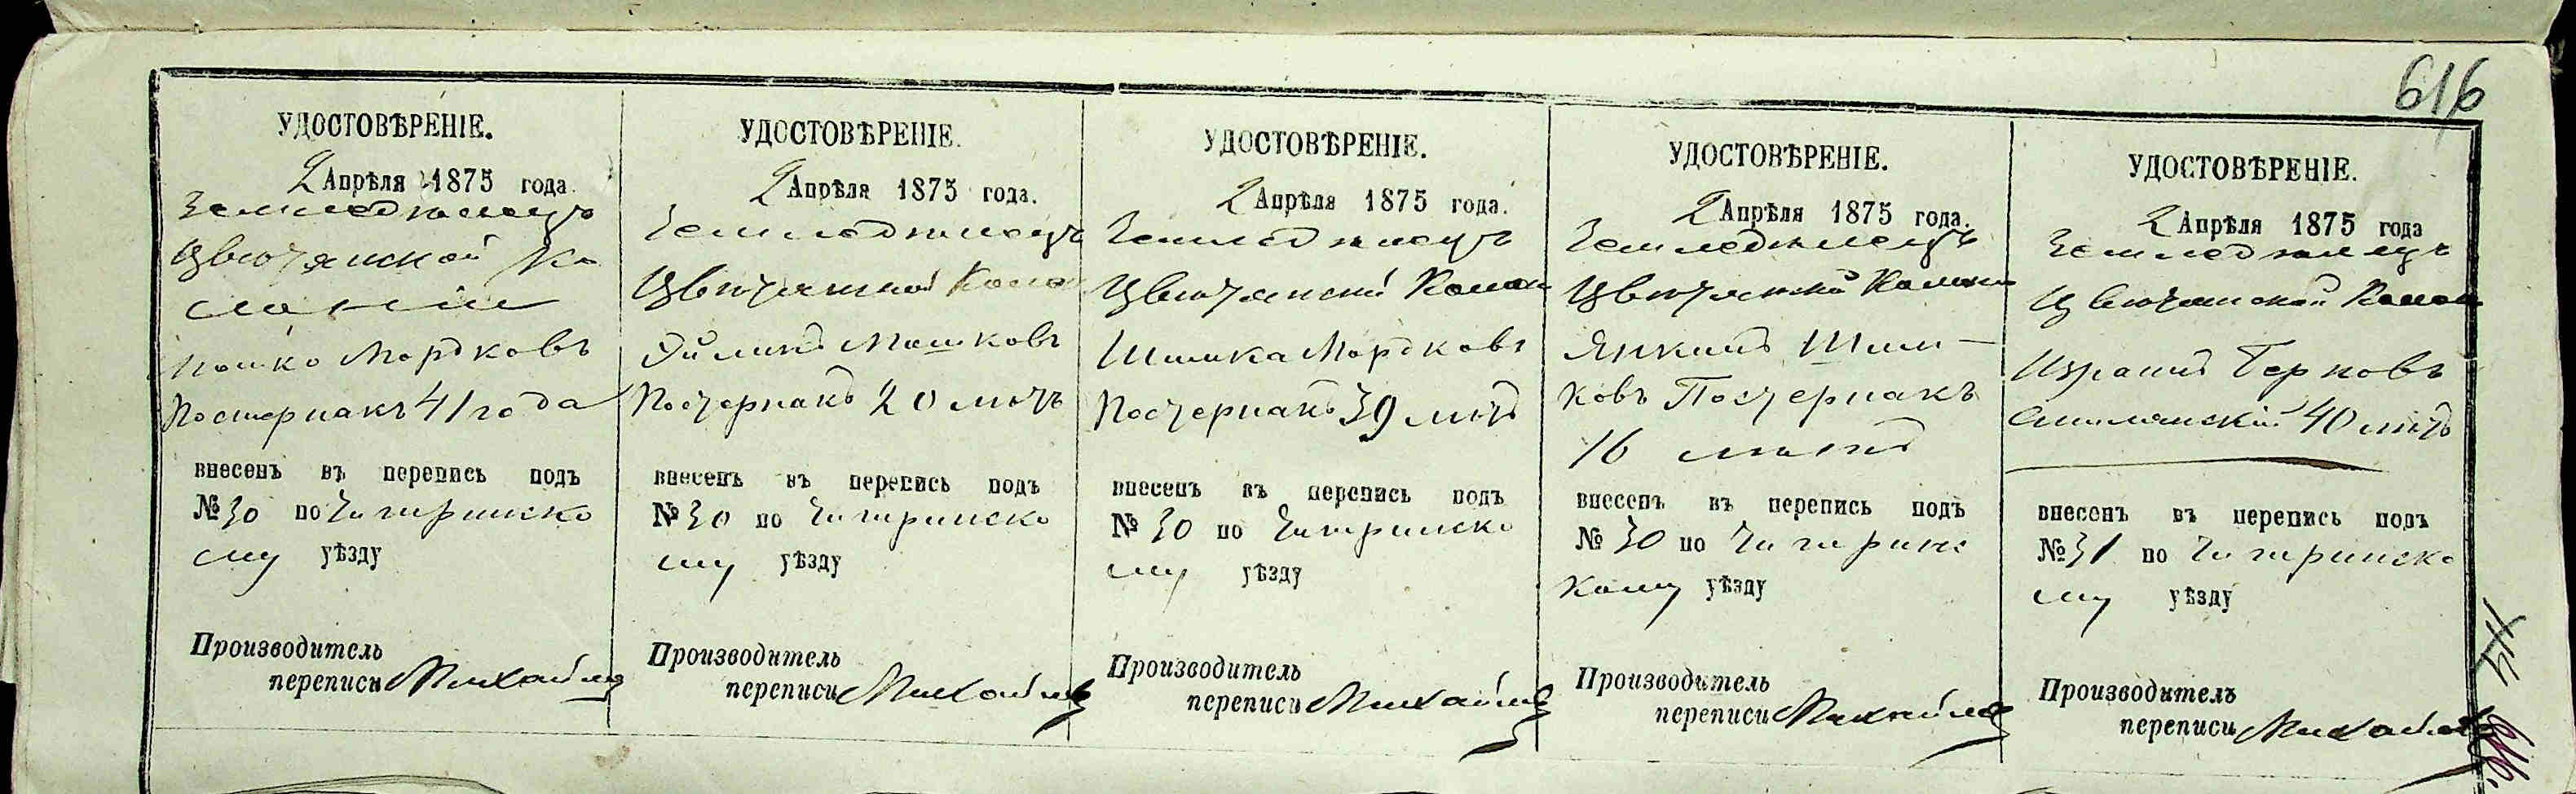 616
УДОСТОВѢРЕНІЕ.
2 Апрѣля 1875 года.
Земледѣлецъ
Цвѣтянской Ко
лоніи
Мошко Мордковъ
Постернакъ 41 года
внесенъ въ перепись подъ
№ 30 по Чигиринско
му уѣзду
Производитель
переписи Михайлов
УДОСТОВѢРЕНІЕ.
2 Апрѣля 1875 года.
Земледѣлецъ
Цвѣтянской Колон
Мошковъ
Постернакъ 20 лѣтъ
внесенъ въ перепись подъ
№ 30 по Чигиринско
му уѣзду
Производитель
переписи Михайлов
УДОСТОВѢРЕНІЕ.
2 Апрѣля 1875 года.
Земледѣлецъ
Цвѣтянской Колон
Шимка Мордковъ
Постернакъ 39 лѣтъ
внесенъ въ перепись подъ
№ 30 по Чигиринско
му уѣзду
Производитель
переписи Михайлов
УДОСТОВѢРЕНІЕ.
2 Апрѣля 1875 года.
Земледѣлецъ
Цвѣтянской Колон
Янкель Шим-
ковъ Постернакъ
16 лѣтъ
внесенъ въ перепись подъ
№ 30 по Чигиринс
кому уѣзду
Производитель
переписи Михайлов
УДОСТОВѢРЕНІЕ.
2 Апрѣля 1875 года
Земледѣлецъ
Цвѣтянской Колон
Израиль Берковъ
Смилянскій 40 лѣтъ
внесенъ въ перепись подъ
№ 31 по Чигиринско
му уѣзду
Производитель
переписи Михайлов
616.